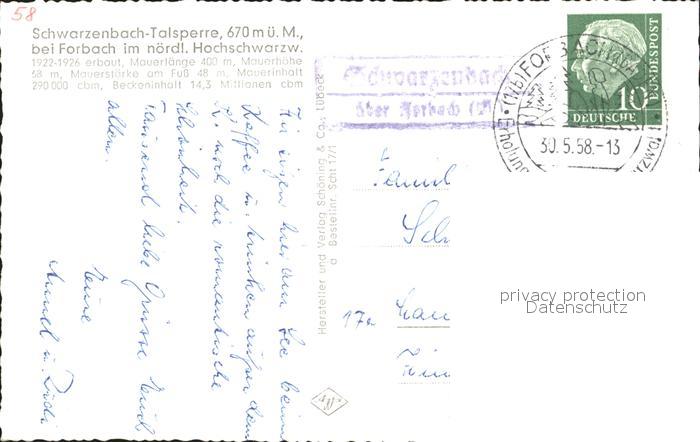 58
Schwarzenbach-Talsperre, 670 m ü. M.,
bei Forbach im nördl. Hochschwarzw.
1922-1926 erbaut, Mauerlänge 400 m, Mauerhöhe
68 m, Mauerstärke am Fuß 48 m, Mauerinhalt
290 000 cbm, Beckeninhalt 14,3 Millionen cbm
Schwarzenbach
über Forbach
(17b) FORBACH
30.5.58.-13
Erholung
10
DEUTSCHE
BUNDESPOST
Hersteller und Verlag Schöning & Co., Lübeck
Bestellnr. Scht 17/1
See beim
Kaffee u. trinken außer dem
noch die romantische
Schönheit.
Tausend liebe Grüsse Euch
allen.
Eure
Famil
Sch
17a
privacy protection
Datenschutz